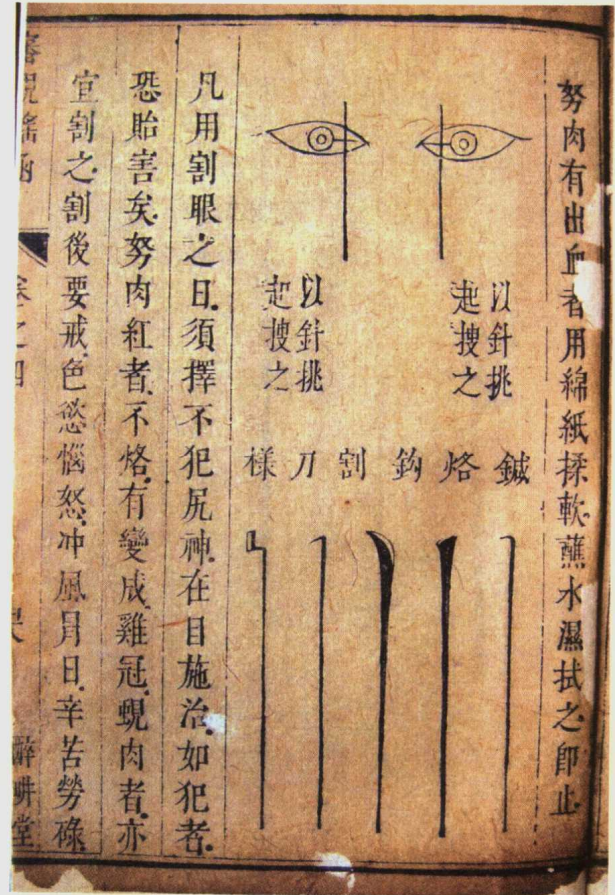 努肉有出血者用綿紙揉軟蘸水濕拭之即止
以針挑
起搜之
以針挑
起搜之
鍼烙鈎割刀樣
凡用割眼之日須擇不犯尻神在目施治如犯者
恐貽害矣努肉紅者不烙有變成雞冠蜆肉者亦
宜割之割後要戒色慾惱怒冲風冒日辛苦勞碌
審視瑤函
卷之四
醉畊堂